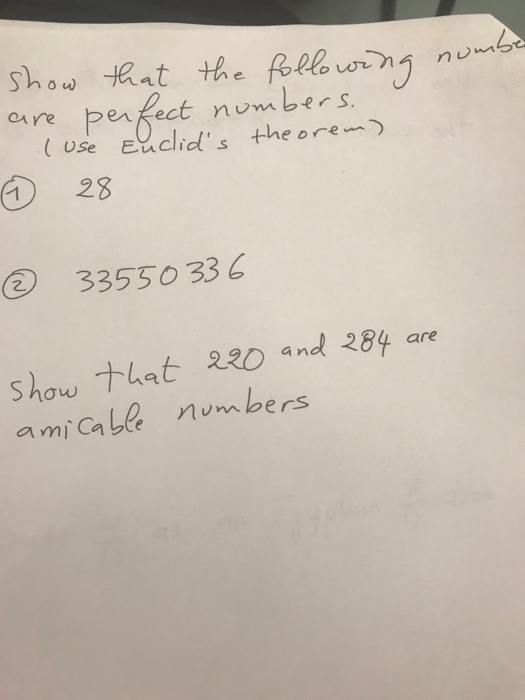 Show that the following numbe
are perfect numbers.
(Use Euclid's theorem)
① 28
② 33550336
Show that 220 and 284 are
amicable numbers